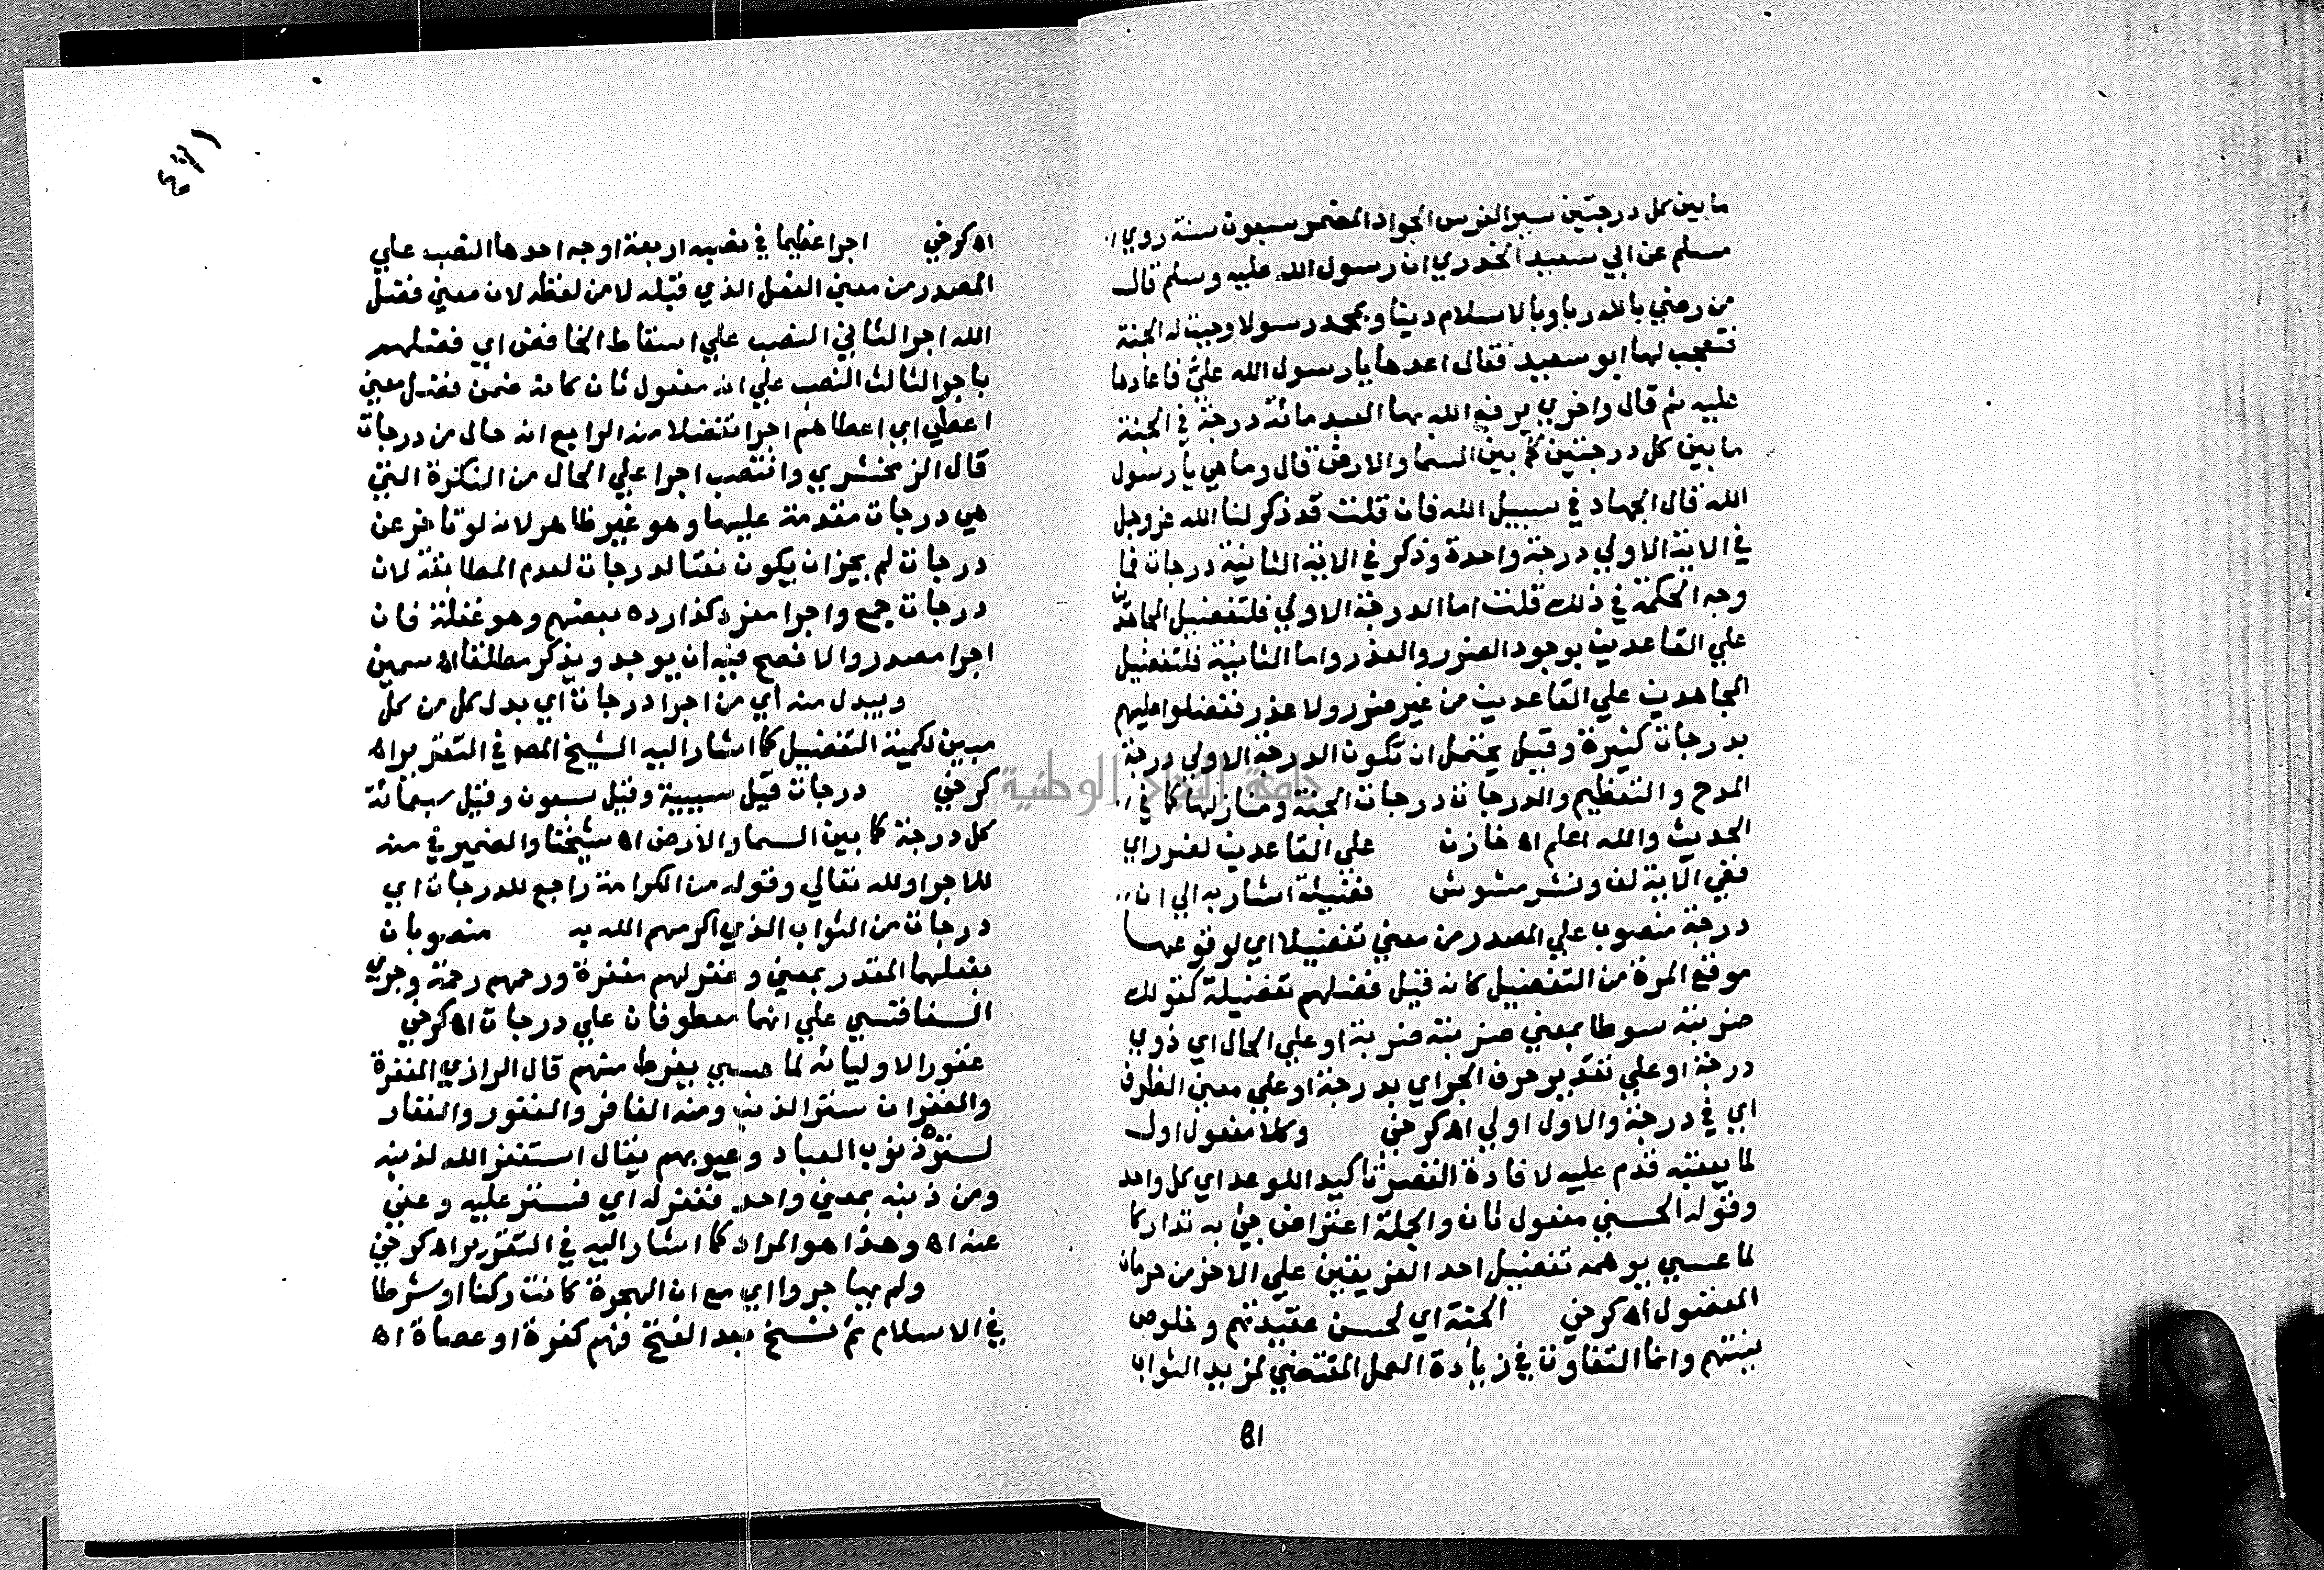 ما بين كل درجتين سير الفرس الجواد المضمر سبعون سنة روي
مسلم عن ابي سعيد الخدري ان رسول الله عليه وسلم قال
من رضي بالله ربا وبالاسلام دينا وبمحمد رسولا وجبت له الجنة
فتعجب لها ابو سعيد فقال اعدها يا رسول الله عليّ فاعادها
عليه ثم قال واخري يرفع الله بها العبد مائة درجة في الجنة
ما بين كل درجتين كما بين السما والارض قال وما هي يا رسول
الله قال الجهاد في سبيل الله فان قلت قد ذكر لنا الله عز وجل
في الاية الاولي درجة واحدة وذكر في الاية الثانية درجات فما
وجه الحكمة في ذلك قلت اما الدرجة الاولي فلتفضيل المجاهدين
علي القاعدين بوجود الضرر والعذر واما الثانية فلتفضيل
المجاهدين علي القاعدين من غير ضرر ولا عذر ففضلوا عليهم
بدرجات كثيرة وقيل يحتمل ان تكون الدرجة الاولي درجة
المدح والتعظيم والدرجات درجات الجنة ومنازلها كما في
الحديث والله اعلم اه خازن علي القاعدين لضرر اي
ففي الآية لف ونشر مشوش فضيلة اشار به الي ان
درجة منصوب علي المصدر من معني تفضيلا اي لوقوعها
موقع المرة من التفضيل كانه قيل فضلهم تفضيلة كقولك
ضربته سوطا بمعني ضربته ضربة او علي الحال اي ذوي
درجة او علي تقدير حرف الجر اي بدرجة او علي معني الظرف
اي في درجة والاول اولي اه كرخي وكلا مفعول اول
لما يعقبه قدم عليه لافادة القصر تاكيد اللوعد اي كل واحد
وقوله الحسني مفعول ثان والجملة اعتراض جيئ به تداركا
لما عسي يوهمه تفضيل احد الفريقين علي الاخر من حرمان
المفضول اه كرخي الجنة اي لحسن عقيدتهم وخلوص
نيتهم وانما التفاوت في زيادة العمل المقتضي لمزيد الثواب
81
اه كرخي اجرا عظيما في نصبه اربعة اوجه احدها النصب علي
المصدر من معني الفعل الذي قبله لا من لفظه لان معني فضل
الله اجر الثاني النصب علي اسقاط الخافض اي فضلهم
باجر الثالث النصب علي انه مفعول ثان كانه ضمن فضل معني
اعطي اي اعطاهم اجرا تفضلا منه الرابع انه حال من درجات
قال الزمخشري وانتصب اجرا علي الحال من النكرة التي
هي درجات مقدمة عليها وهو غير ظاهر لانه لو تاخر عن
درجات لم يجز ان يكون نعتا لدرجات لعدم المطابقة لان
درجات جمع واجرا مفرد كذا رده بعضهم وهو غفلة فان
اجرا مصدر والافصح فيه ان يوحد ويذكر مطلقا اه سمين
ويبدل منه اي من اجرا درجات اي بدل كل من كل
مبين لكمية التفضيل كما اشار اليه الشيخ المص في التقرير اه
كرخي درجات قيل سبعية وقيل سبعون وقيل سبعمائة
كل درجة كما بين السما والارض اه شيخنا والضمير في منه
للاجر او لله تعالي وقوله من الكرامة راجع للدرجات اي
درجات من الثواب الذي اكرمهم الله به منصوبان
بفعلهما المقدر بمعني وغفر لهم مغفرة ورحمهم رحمة وجري
السفاقسي علي انهما معطوفان علي درجات اه كرخي
غفور الاوليائه لما عسي يفرط منهم قال الرازي المغفرة
والغفران ستر الذنب ومنه الغافر والغفور والغفار
لستره ذنوب العباد وعيوبهم يقال استغفر الله لذنبه
ومن ذنبه بمعني واحد فغفر له اي فستر عليه وعفي
عنه اه وهذا هو المراد كما اشار اليه في التقرير اه كرخي
ولم يهاجروا اي مع ان الهجرة كانت ركنا او شرطا
في الاسلام ثم نسخ بعد الفتح فهم كفرة او عصاة اه
جامعة النجاح الوطنية